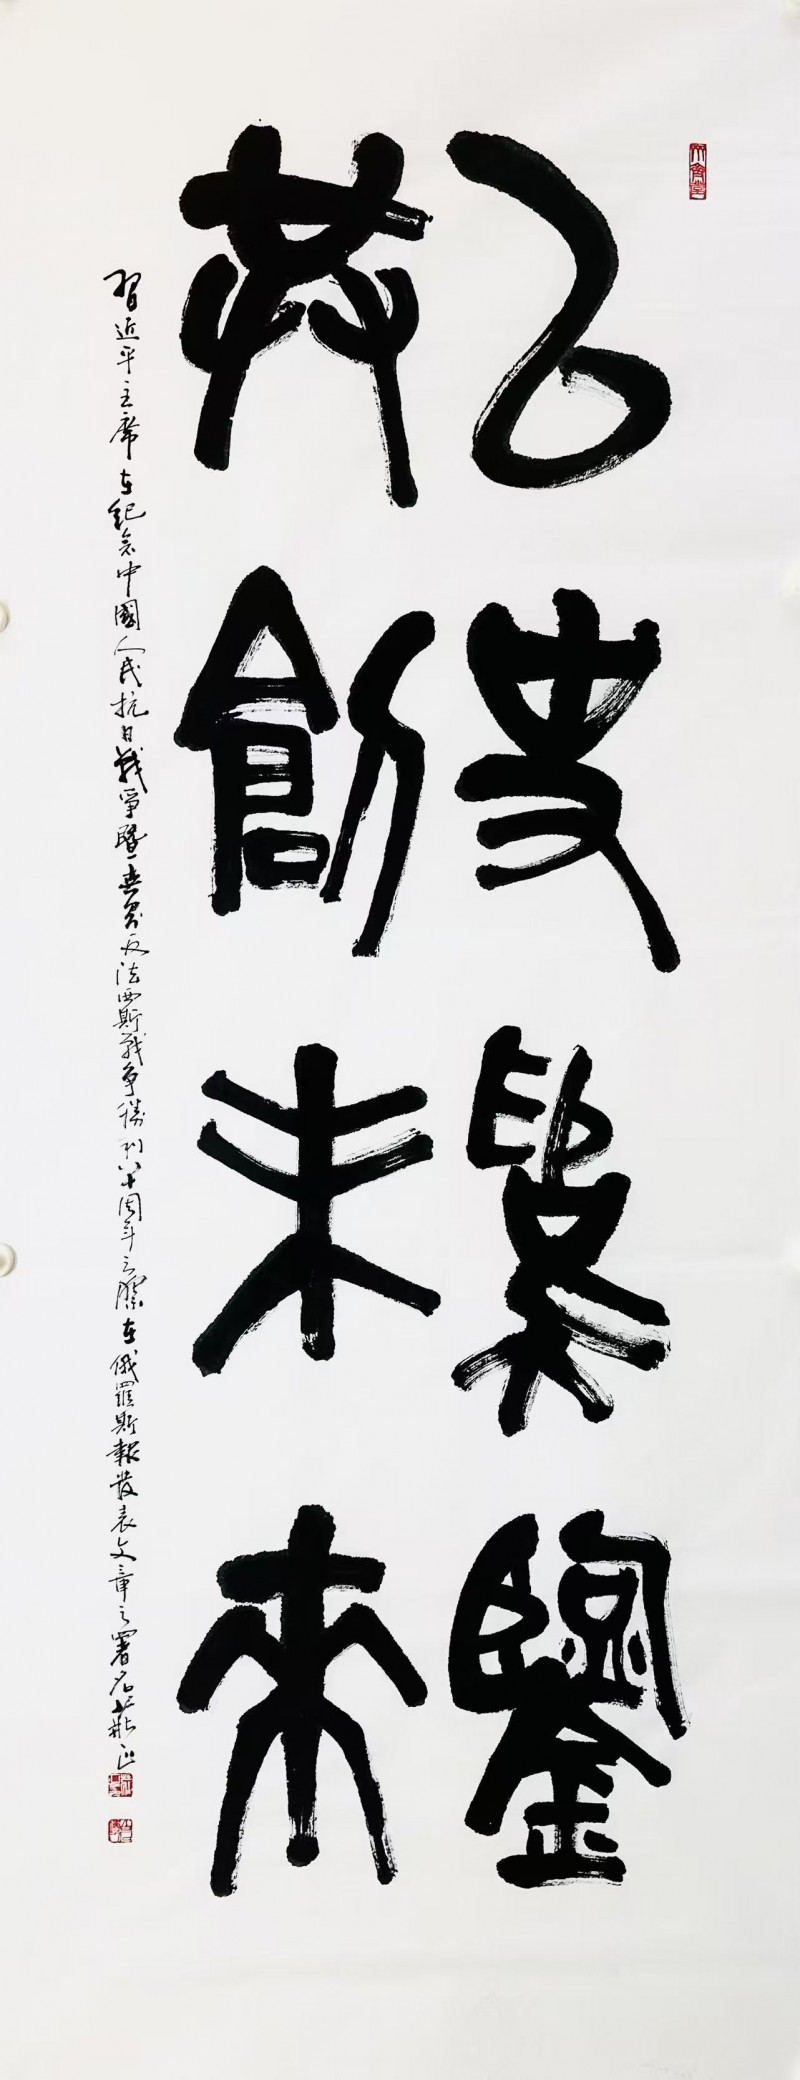 以史為鑒
共創未來
習近平主席在紀念中國人民抗日戰爭暨世界反法西斯戰爭勝利八十周年之際在俄羅斯報發表文章之署名